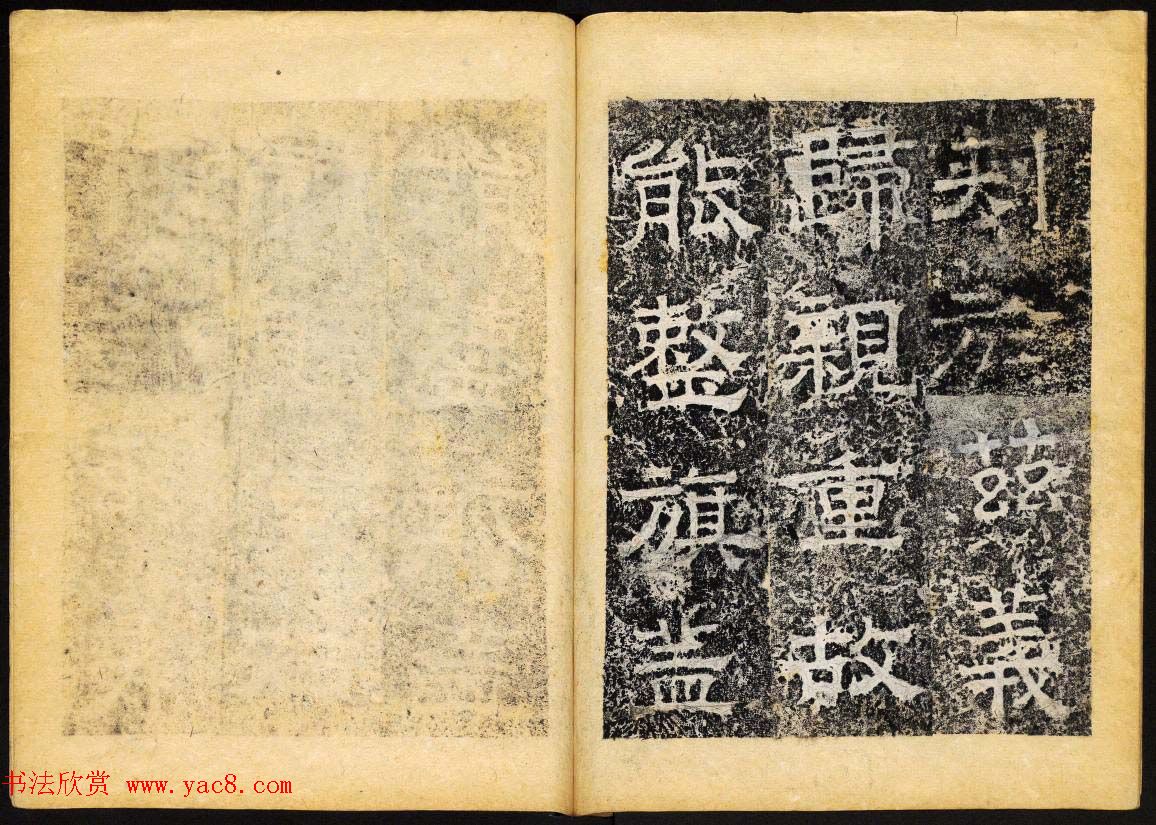 刋方茲義
歸親重故
能整旗盖
书法欣赏 www.yac8.com